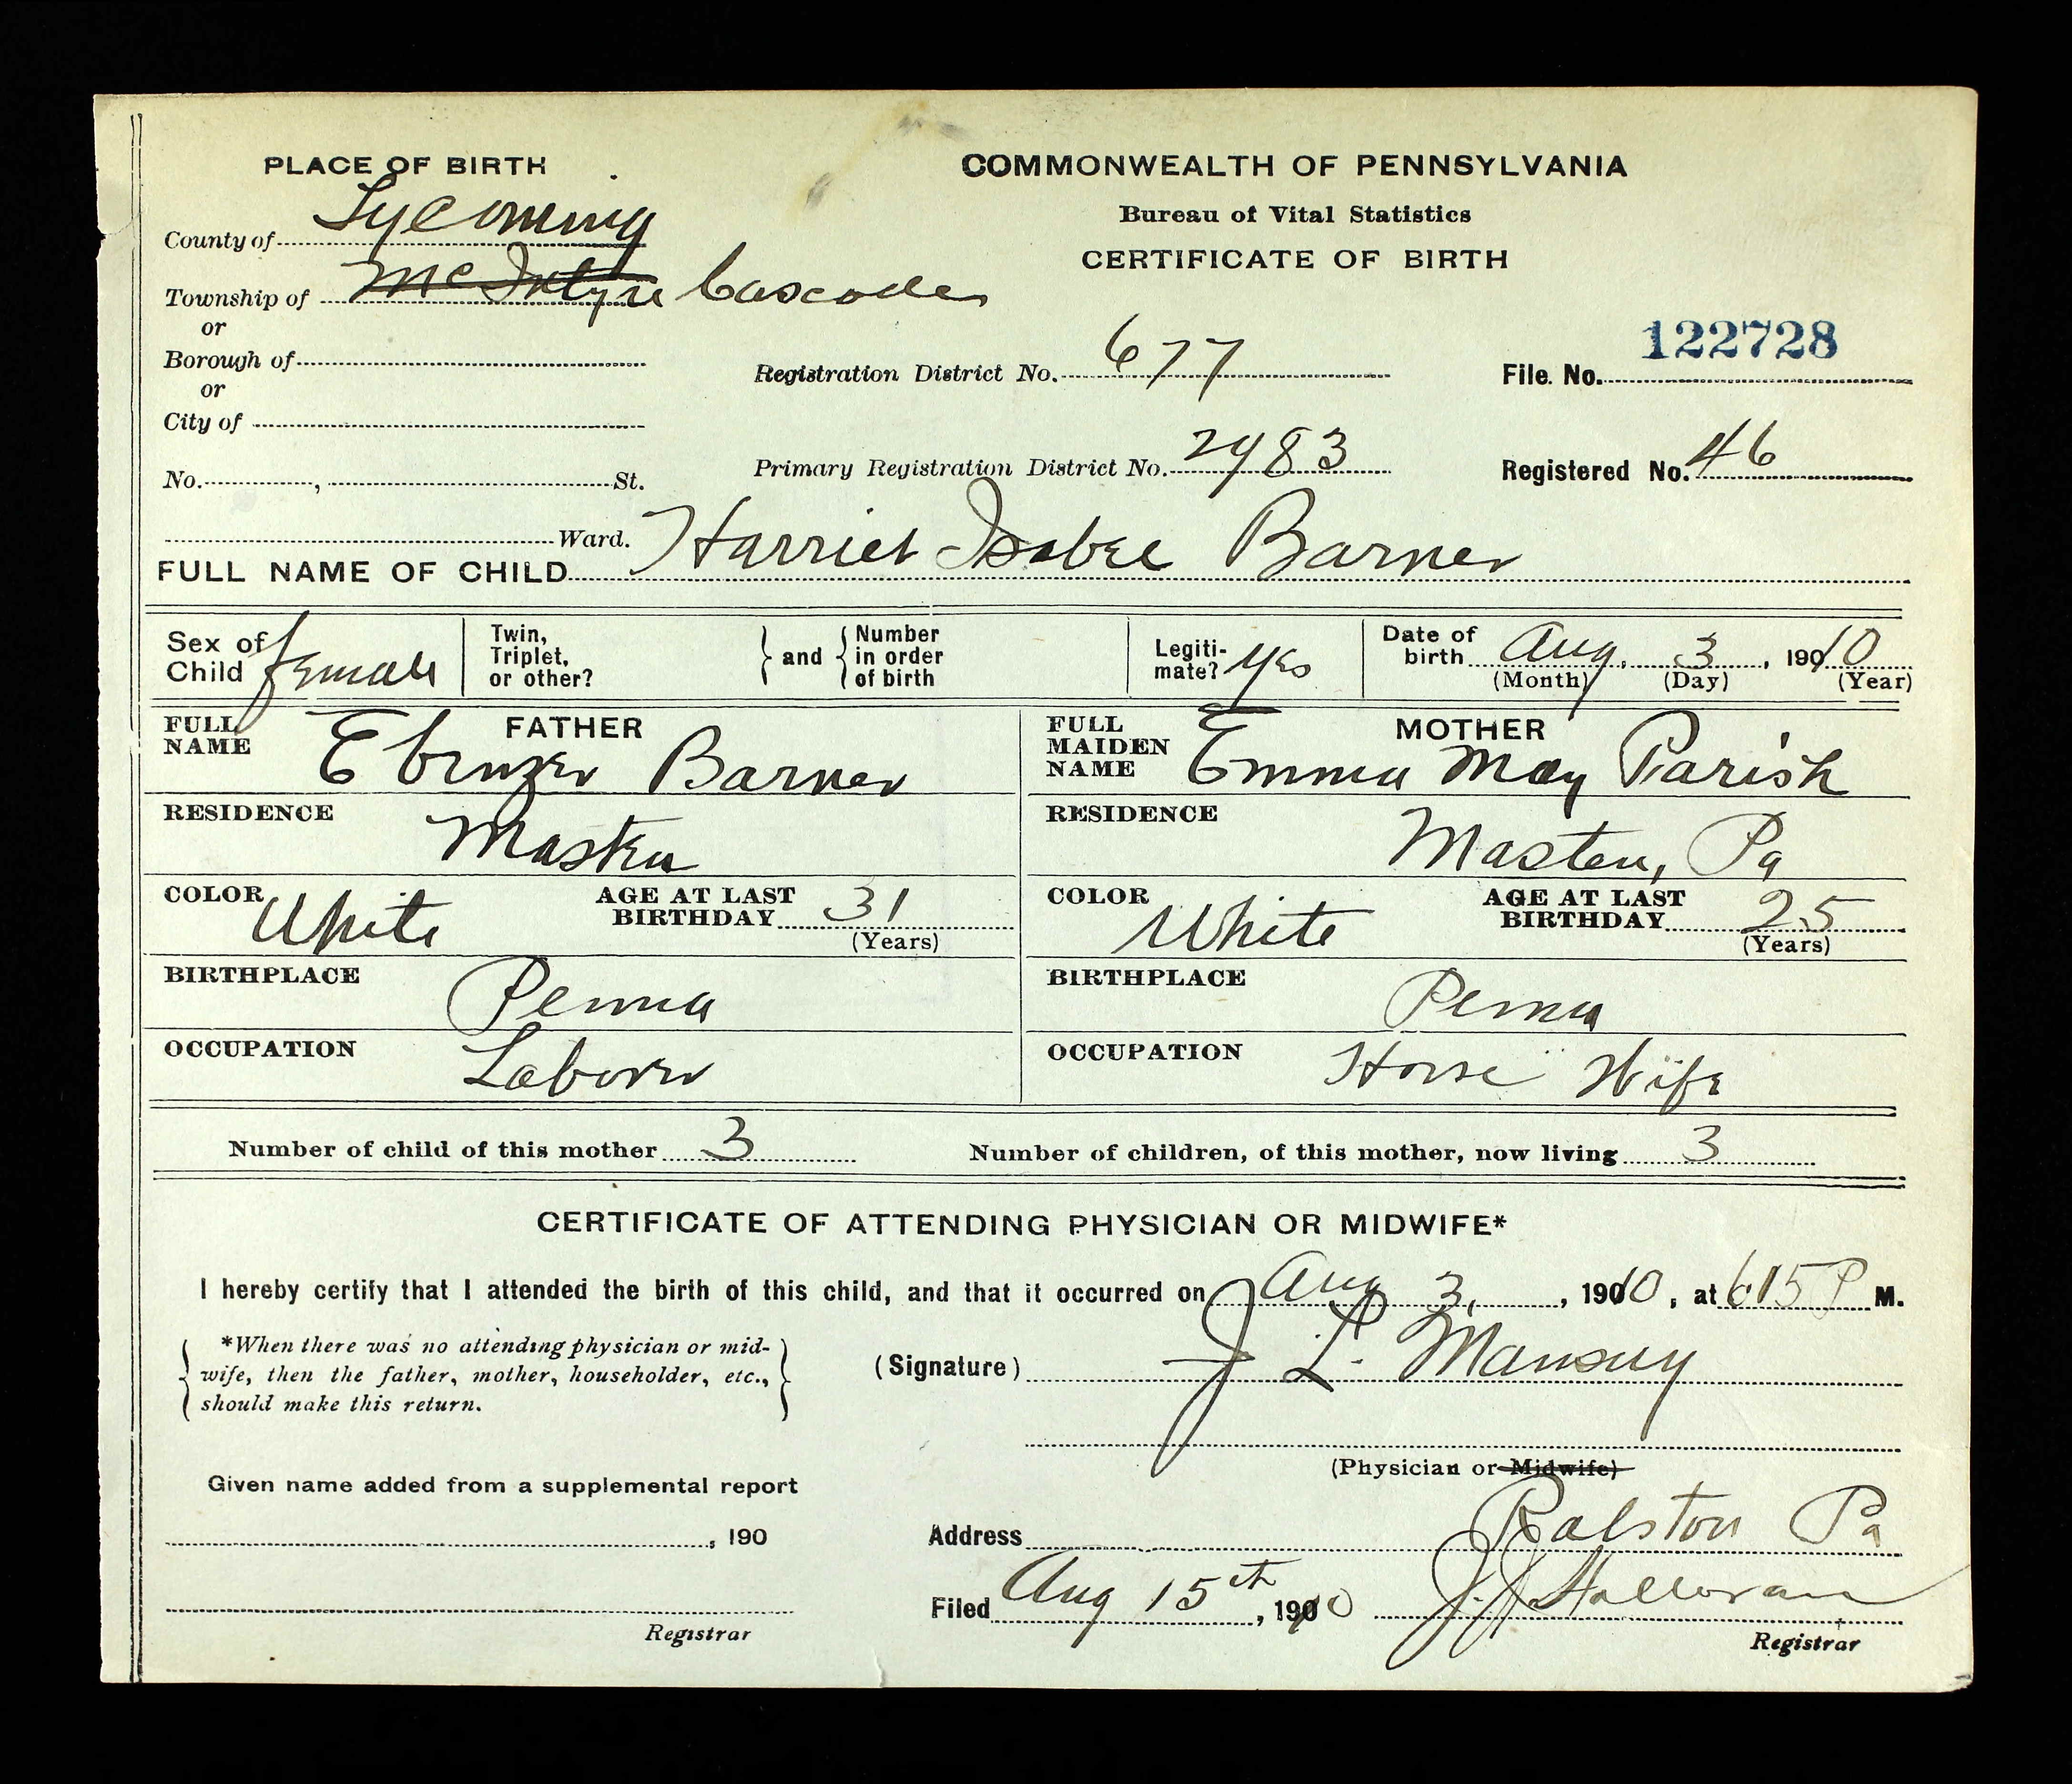 PLACE OF BIRTH
County of Lycoming
Township of McIntyre Cascade
or
Borough of
or
City of
No. , St.
Ward.
COMMONWEALTH OF PENNSYLVANIA
Bureau of Vital Statistics
CERTIFICATE OF BIRTH
Registration District No. 677
File No. 122728
Primary Registration District No. 2983
Registered No. 46
FULL NAME OF CHILD Harriet Isabel Barner
Sex of Child female
Twin, Triplet, or other?
and
Number in order of birth
Legitimate? yes
Date of birth Aug. 3, 1910
(Month) (Day) (Year)
FATHER
FULL NAME Ebenezer Barner
RESIDENCE Masten
COLOR White
AGE AT LAST BIRTHDAY 31
(Years)
BIRTHPLACE Penna
OCCUPATION Laborer
MOTHER
FULL MAIDEN NAME Emma May Parish
RESIDENCE Masten, Pa
COLOR White
AGE AT LAST BIRTHDAY 25
(Years)
BIRTHPLACE Penna
OCCUPATION House Wife
Number of child of this mother 3
Number of children, of this mother, now living 3
CERTIFICATE OF ATTENDING PHYSICIAN OR MIDWIFE*
I hereby certify that I attended the birth of this child, and that it occurred on Aug 3, 1910, at 615 P M.
*When there was no attending physician or mid-
wife, then the father, mother, householder, etc.,
should make this return.
(Signature) J. L. Mansuy
(Physician or Midwife)
Given name added from a supplemental report
, 190
Registrar
Address Ralston Pa
Filed Aug 15th, 1910 J. J. Halloran
Registrar